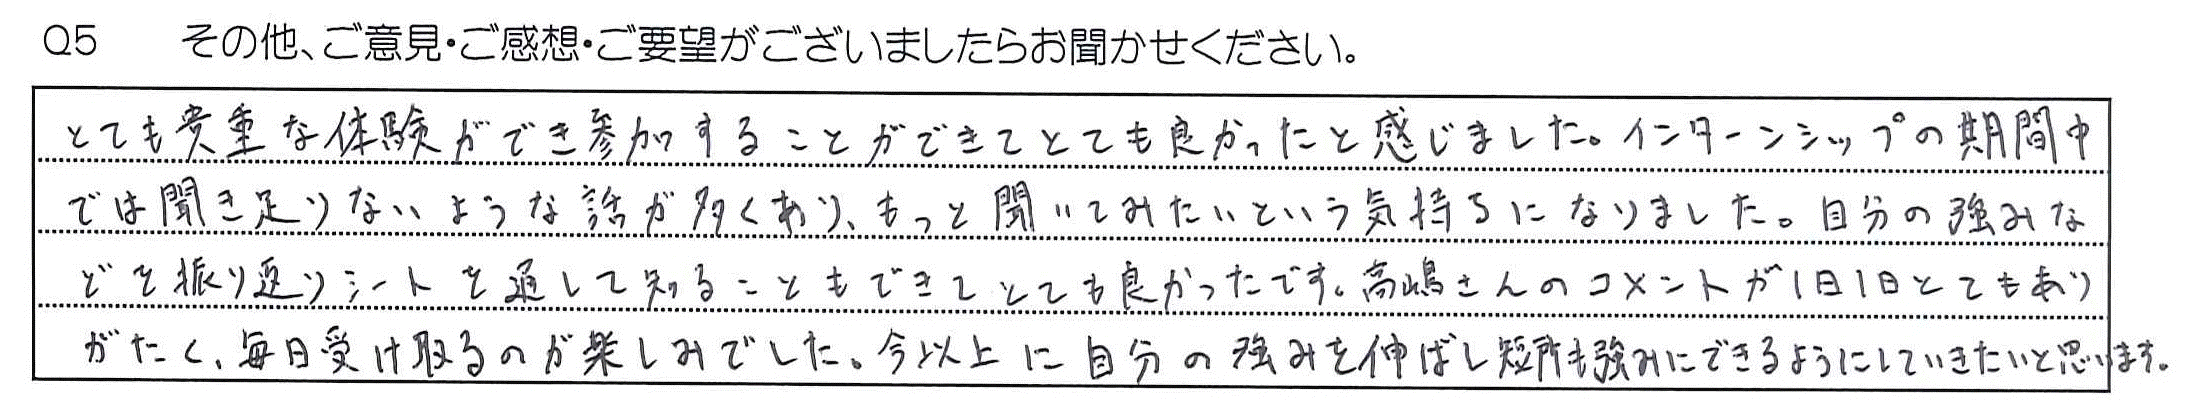 Q5 その他、ご意見・ご感想・ご要望がございましたらお聞かせください。
とても貴重な体験ができ参加することができてとても良かったと感じました。インターンシップの期間中
では聞き足りないような話が多くあり、もっと聞いてみたいという気持ちになりました。自分の強みな
どを振り返りシートを通して知ることもできてとても良かったです。高嶋さんのコメントが1日1日とてもあり
がたく、毎日受け取るのが楽しみでした。今以上に自分の強みを伸ばし短所も強みにできるようにしていきたいと思います。